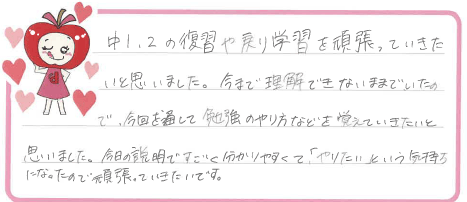 中1.2の復習や戻り学習を頑張っていきた
いと思いました。今まで理解できないままでいたの
で、今回を通して勉強のやり方などを覚えていきたいと
思いました。今日の説明ですごく分かりやすくて、「やりたい」という気持ち
になったので頑張っていきたいです。